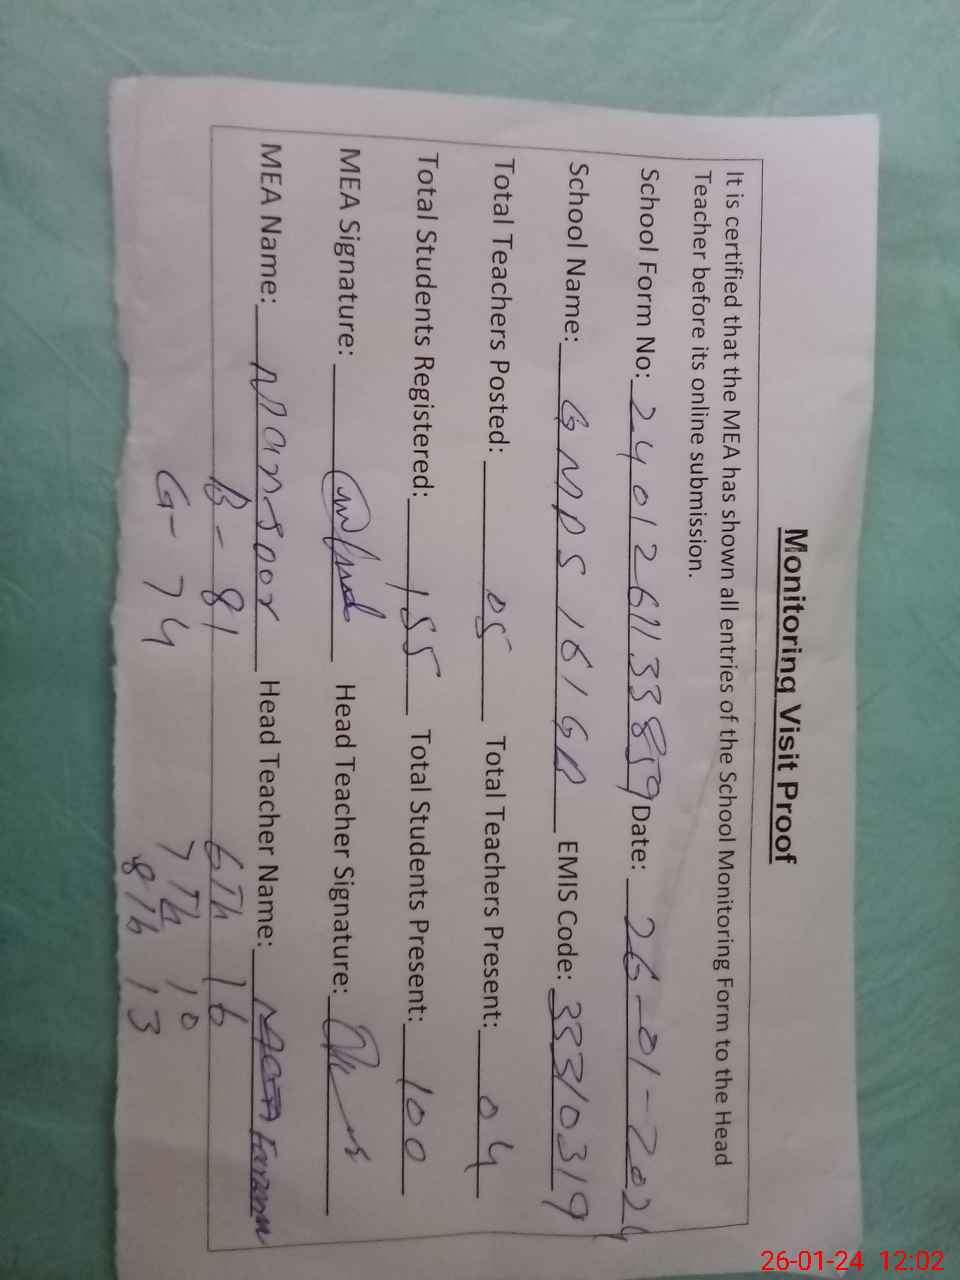 Monitoring Visit Proof
It is certified that the MEA has shown all entries of the School Monitoring Form to the Head
Teacher before its online submission.
School Form No: 2401261133859 Date: 26-01-2024
School Name: GMPS 161 GB EMIS Code: 33310319
Total Teachers Posted: 05 Total Teachers Present: 04
Total Students Registered: 155 Total Students Present: 100
MEA Signature: Head Teacher Signature:
MEA Name: Mansoor Head Teacher Name:
B- 81 6Th 16
G- 74 7Th 10
8Th 13
26-01-24 12:02